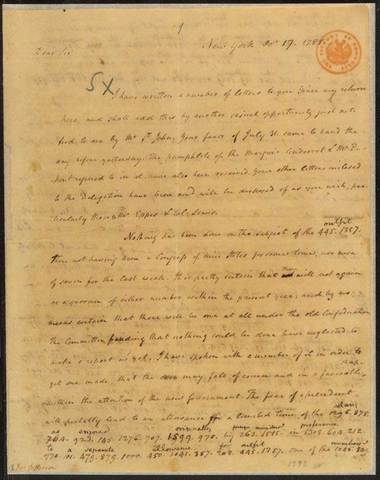 1
New York Octr 17. 1788
Dear Sir
I have written a number of letters to you since my return
here, and shall add this by another casual opportunity just noti-
fied to me by Mr. St. John. Your favor of July 31. came to hand the
day before yesterday. The pamphlets of the Marquis Condorcet & Mr. Du-
pont referred to in it have also been received. Your other letters inclosed
to the Delegation have been and will be disposed of as you wish; par-
ticularly those to Mr. Eppes & Col. Lewis.
outfit
Nothing has been done on the subject of the 445. 1357.
there not having been a Congress of nine States for some time, nor even
of seven for the last week. It is pretty certain that there will not again
be a quorum of either number within the present year; and by no
means certain that there will be one at all under the old Confederation.
The Committee finding that nothing could be done have neglected to
make a report as yet. I have spoken with a member of it in order to
get one made, that the case may fall of course and in a favorable
shape
within the attention of the new Government. The fear of a precedent
will probably lead to an allowance for a limited time, of the
salary
as enjoyed originally
preference
to a separate allowance for outfit
one of the
members